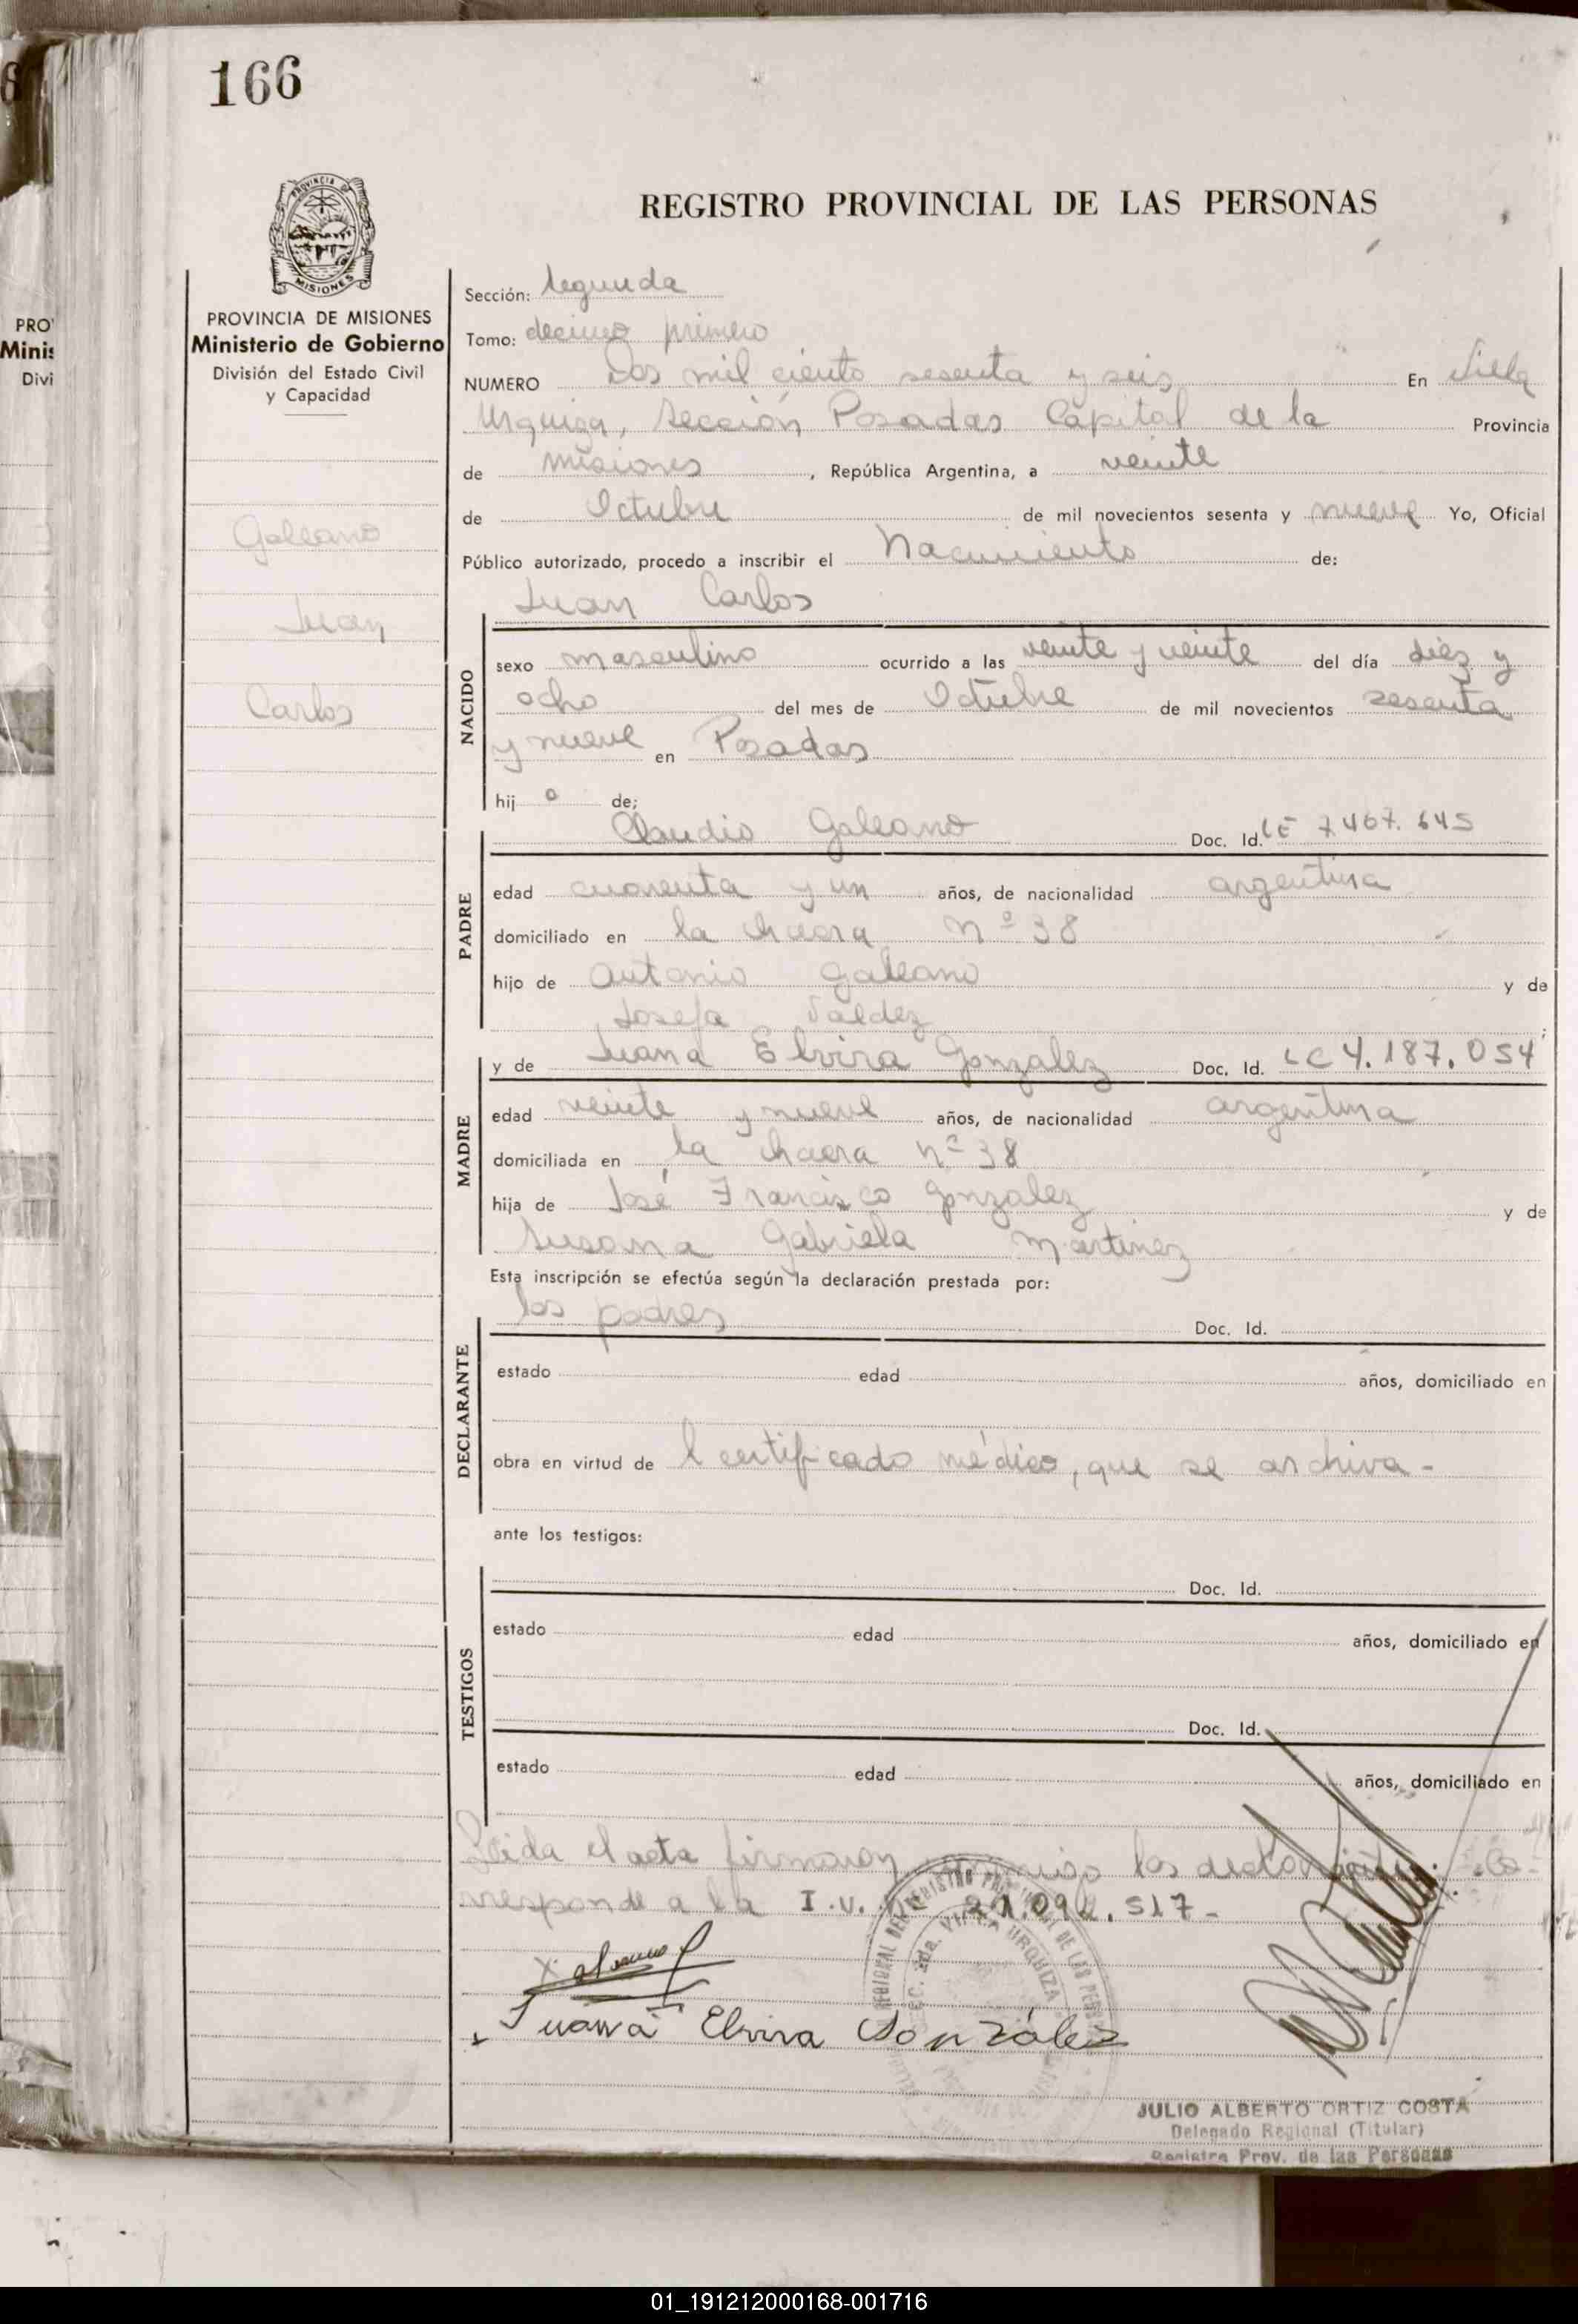 166
REGISTRO PROVINCIAL DE LAS PERSONAS
PROVINCIA DE MISIONES
Ministerio de Gobierno
División del Estado Civil
y Capacidad
Galeano
Juan
Carlos
Sección: Segunda
Tomo: decimo primero
NUMERO Dos mil ciento sesenta y seis En Villa
Urquiza, Sección Posadas Capital de la Provincia
de Misiones, República Argentina, a veinte
de Octubre de mil novecientos sesenta y nueve Yo, Oficial
Público autorizado, procedo a inscribir el Nacimiento de:
Juan Carlos
NACIDO
sexo masculino ocurrido a las veinte y veinte del día diez y
ocho del mes de Octubre de mil novecientos sesenta
y nueve en Posadas
hij o de:
PADRE
Claudio Galeano Doc. Id. LE 7.467.645
edad cuarenta y un años, de nacionalidad argentina
domiciliado en la chacra Nº 38
hijo de Antonio Galeano y de
Josefa Valdez
MADRE
y de Juana Elvira Gonzalez Doc. Id. LC 4.187.054
edad veinte y nueve años, de nacionalidad argentina
domiciliada en la chacra nº 38
hija de José Francisco Gonzalez y de
Susana Gabriela Martinez
Esta inscripción se efectúa según la declaración prestada por:
DECLARANTE
los padres Doc. Id.
estado edad años, domiciliado en
obra en virtud de l certificado médico, que se archiva -
ante los testigos:
TESTIGOS
Doc. Id.
estado edad años, domiciliado en
Doc. Id.
estado edad años, domiciliado en
Leida el acta firmaron conmigo los declarantes. Co-
rresponde a la I.V. Nº 21.092.517-
Juana Elvira González
JULIO ALBERTO ORTIZ COSTA
Delegado Regional (Titular)
Registro Prov. de las Personas
01_191212000168-001716